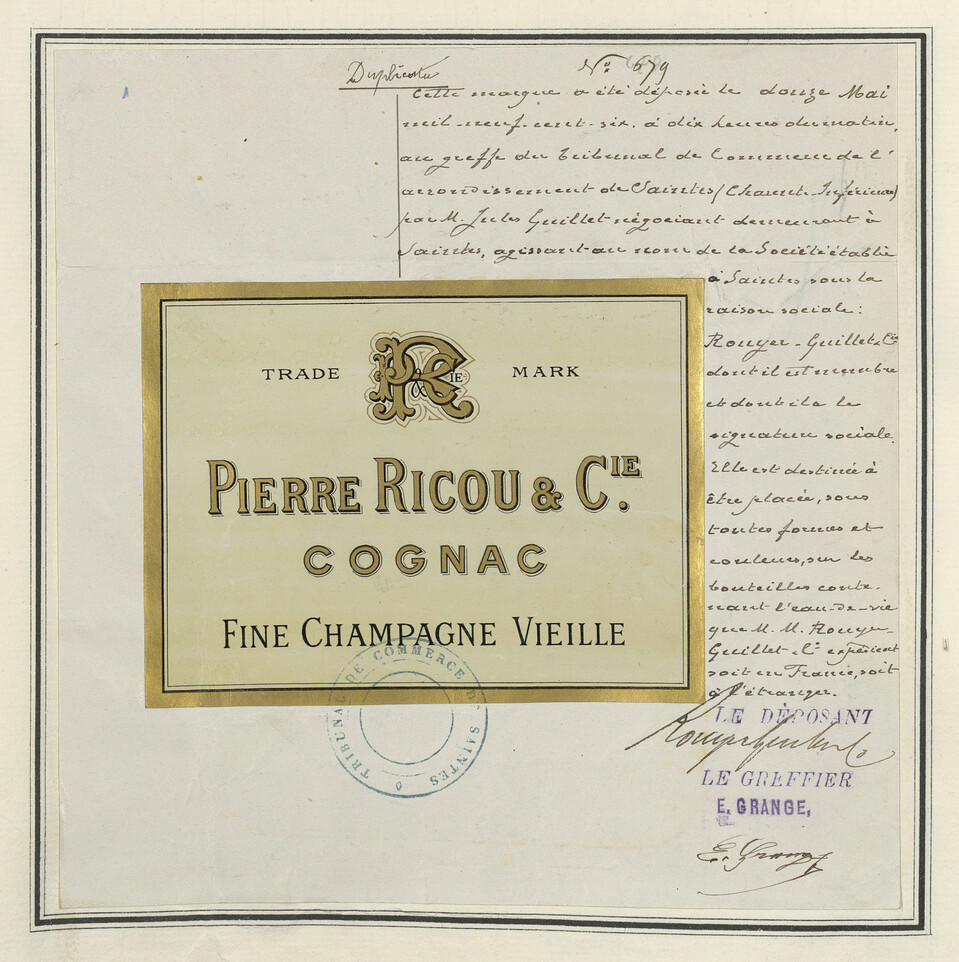 Duplicata
No 679
Cette marque a été déposée le douze Mai
mil-neuf-cent-six, à dix heures du matin,
au greffe du Tribunal de Commerce de l'
arrondissement de Saintes (Charente-Inférieure)
par M. Jules Guillet négociant demeurant à
Saintes, agissant au nom de la Société établie
à Saintes sous la
raison sociale:
Rouyer-Guillet & Cie
dont il est membre
et dont il a la
signature sociale.
Elle est destinée à
être placée, sous
toutes formes et
couleurs, sur les
bouteilles conte-
nant l'eau-de-vie
que M. M. Rouyer-
Guillet & Cie expédient
soit en France, soit
à l'étranger.
TRADE MARK
PR & CIE
PIERRE RICOU & CIE.
COGNAC
FINE CHAMPAGNE VIEILLE
TRIBUNAL DE COMMERCE DE SAINTES
LE DÉPOSANT
Rouyer Guillet & Co
LE GREFFIER
E. GRANGE,
E. Grange